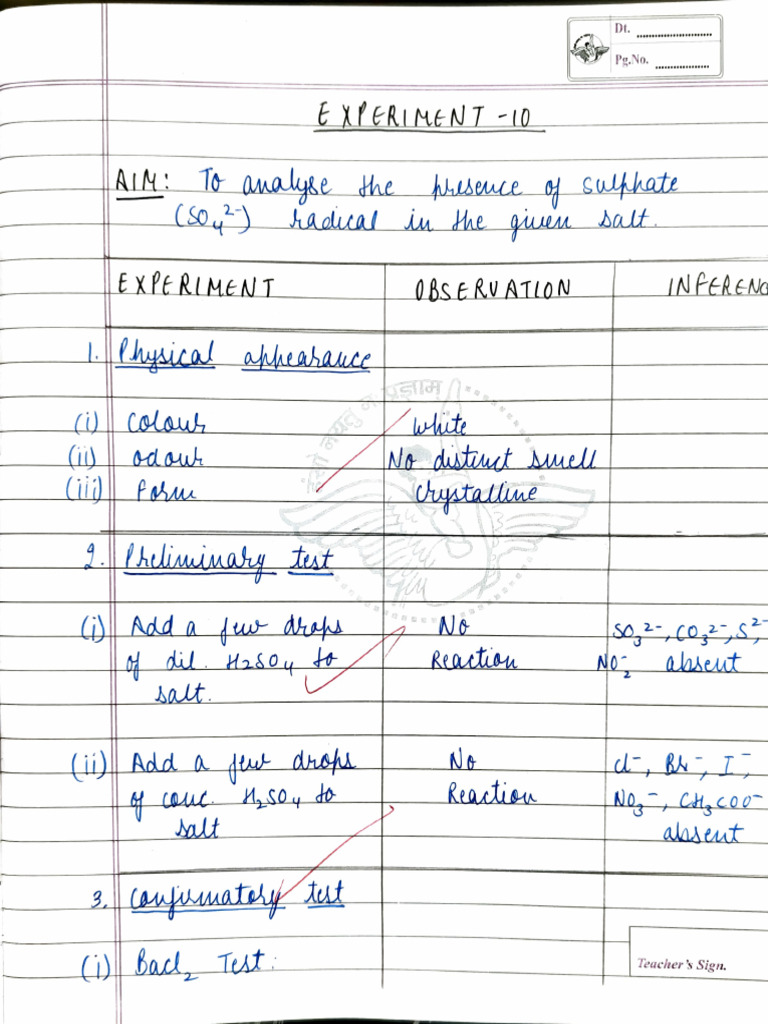 Dt. ........................
Pg.No. ..................
EXPERIMENT -10
AIM: To analyse the presence of sulphate
(SO₄²⁻) radical in the given salt.
EXPERIMENT OBSERVATION INFERENC
1. Physical appearance
(i) colour white
(ii) odour No distinct smell
(iii) form crystalline
2. Preliminary test
(i) Add a few drops No SO₃²⁻, CO₃²⁻, S²⁻
of dil. H2SO₄ to Reaction NO₂⁻ absent
salt.
(ii) Add a few drops No Cl⁻, Br⁻, I⁻,
of conc. H₂SO₄ to Reaction NO₃⁻, CH₃COO⁻
salt absent
3. Confirmatory test
(i) Bacl₂ Test:
Teacher's Sign.